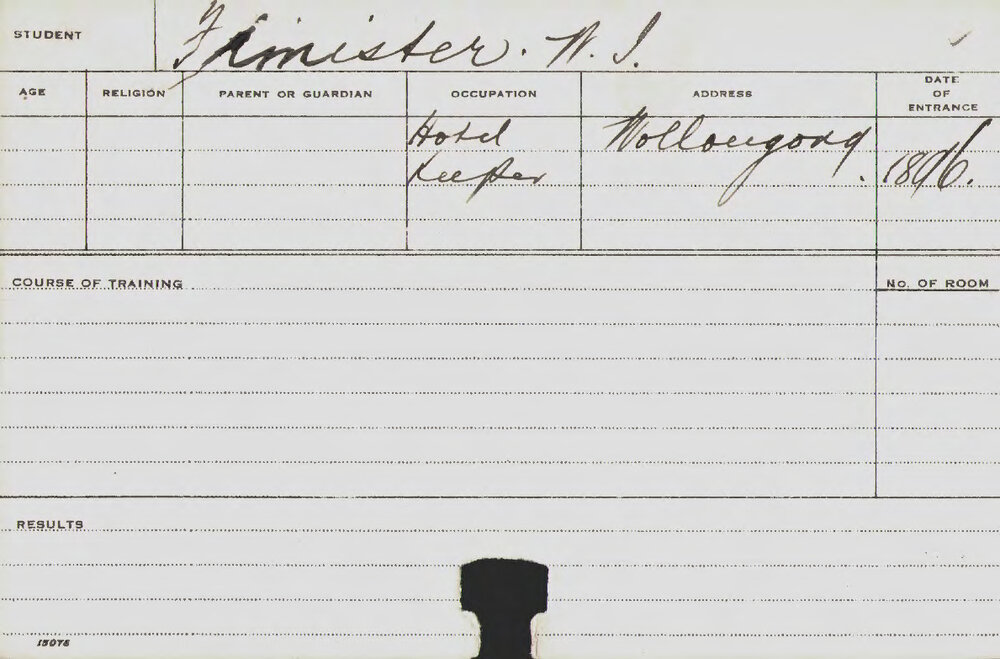 STUDENT Fiminister. W. J.
AGE RELIGION PARENT OR GUARDIAN OCCUPATION ADDRESS DATE OF ENTRANCE
Hotel Keeper Wollongong. 1896.
COURSE OF TRAINING No. OF ROOM
RESULTS
15076